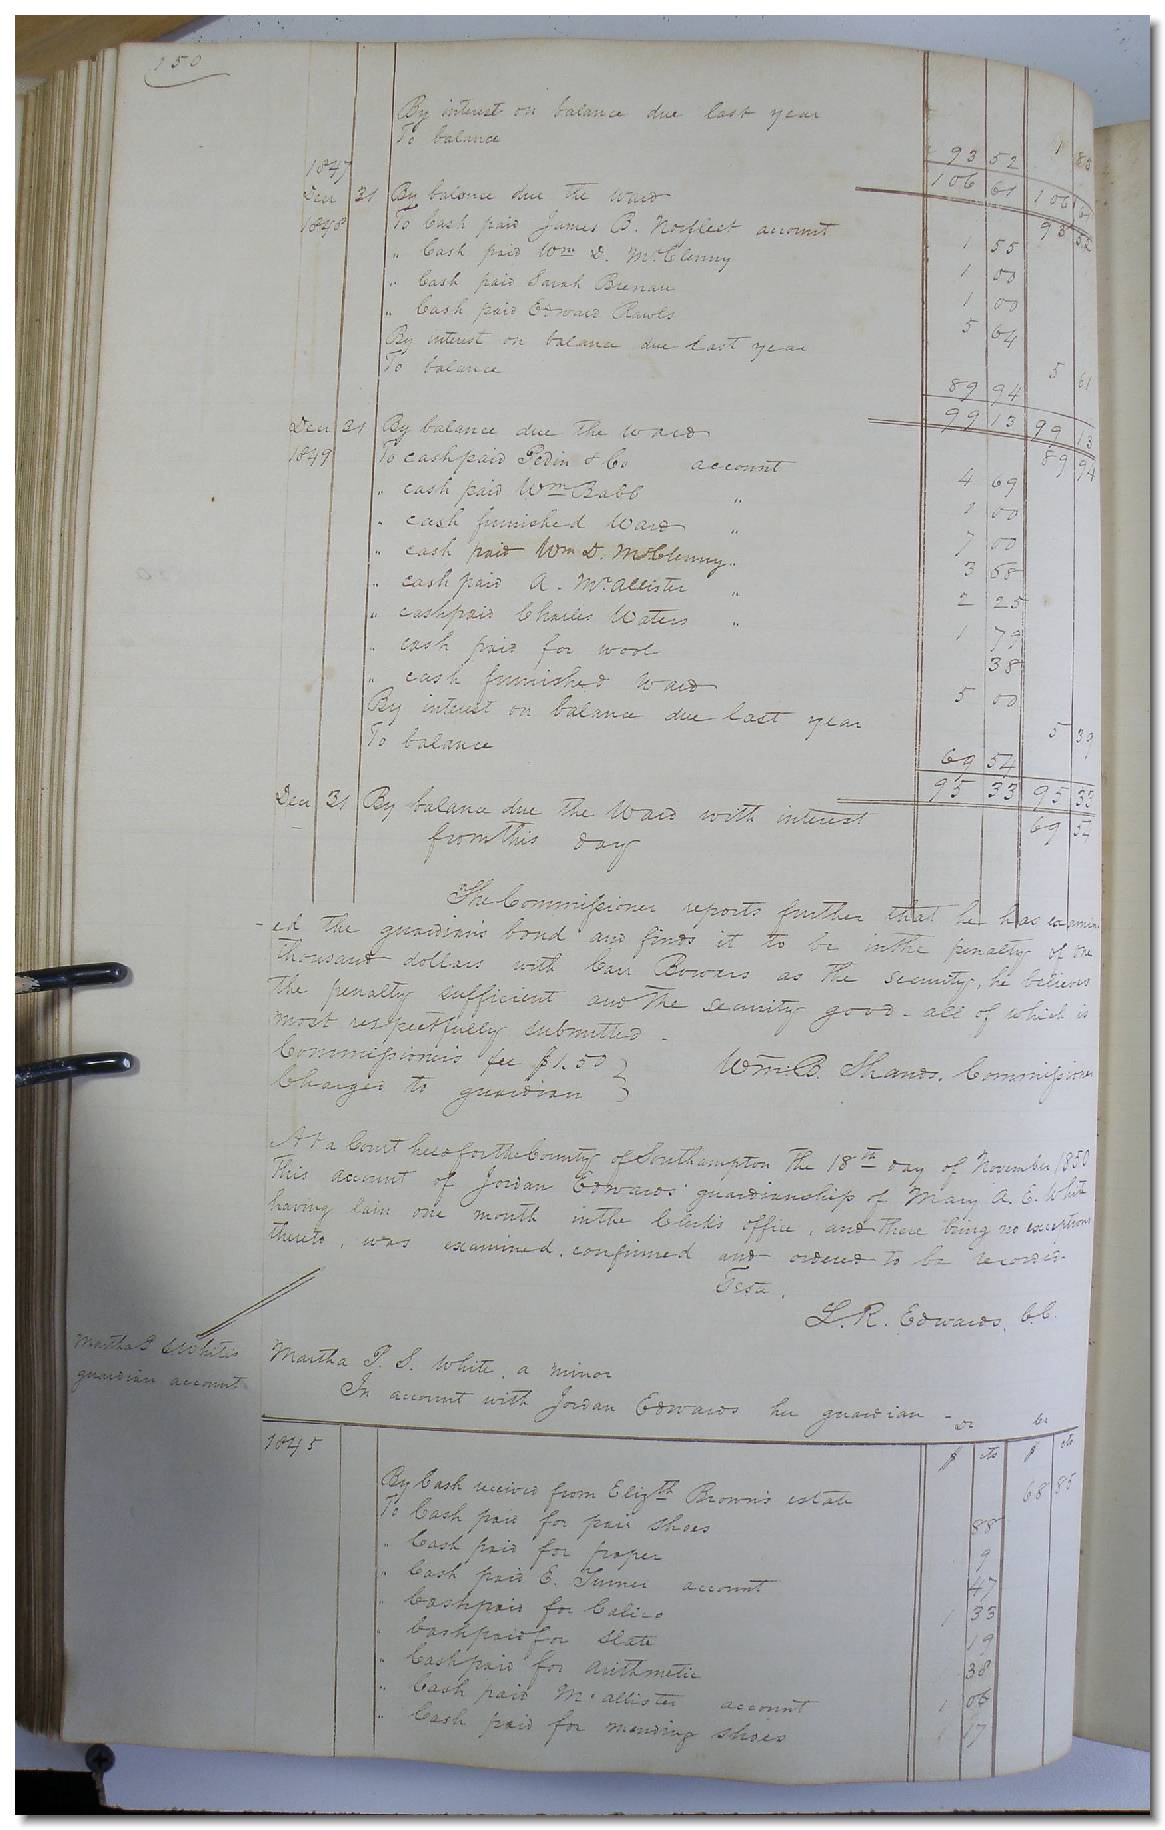 150
By interest on balance due last year 1 80
To balance 93 52
1847 106 61 106 61
Decr 31 By balance due the Ward 93 52
1848 To Cash paid James B. Norfleet account 1 55
" Cash paid Wm D. McClenny 1 00
" Cash paid Sarah 1 00
" Cash paid Edward Rawls 5 64
By interest on balance due last year 5 61
To balance 89 94
99 13 99 13
Decr 31 By balance due the ward 89 94
1849 To cash paid Pedin & Co account 4 69
" cash paid Wm Babb " 1 00
" cash furnished Ward " 7 00
" cash paid Wm D. McClenny " 3 68
" cash paid A. McAllister " 2 25
" cash paid Charles Waters " 1 79
" cash paid for wool 38
" cash furnished Ward 5 00
By interest on balance due last year 5 39
To balance 69 54
95 33 95 33
Decr 31 By balance due the Ward with interest 69 54
from this day
The Commissioner reports further that he has examin
-ed the guardians bond and finds it to be in the penalty of one
thousand dollars with Carr Bowers as the security, he believes
the penalty sufficient and the security good - all of which is
most respectfully submitted -
Commissioners fee $1.50 }
Charged to guardian }
Wm. B. Shands, Commissioner
At a Court held for the County of Southampton the 18th day of November 1850
This account of Jordan Edwards' guardianship of Mary A. E. White
having lain one month in the Clerk's office, and there being no exceptions
thereto, was examined, confirmed and ordered to be recorded
Teste,
L. R. Edwards, C.C.
guardian account
Martha P. S. White, a minor
In account with Jordan Edwards her guardian - Dr Cr
1845 $ cts $ cts
By Cash received from Elizth Brown's estate 68 85
To Cash paid for pair shoes 88
" Cash paid for paper 9
" Cash paid E. Turner account 47
" Cash paid for Calico 1 33
" Cash paid for Slate 19
" Cash paid for Arithmetic 38
" Cash paid McAllister account 1 06
" Cash paid for mending shoes 17